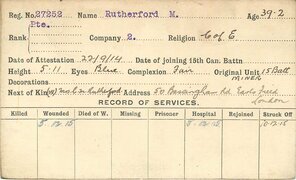 Reg. No. 27252 Name Rutherford M. Age 39.2
Rank Pte. Company 2. Religion C of E
Date of Attestation 22/9/14 Date of joining 15th Can. Battn
Height 5.11 Eyes Blue Complexion Fair Original Unit 15 Batt
Decorations
Next of Kin Rutherford Address 50 Rd. London
RECORD OF SERVICES.
Killed Wounded Died of W. Missing Prisoner Hospital Rejoined Struck Off
8.12.15 8.12.15